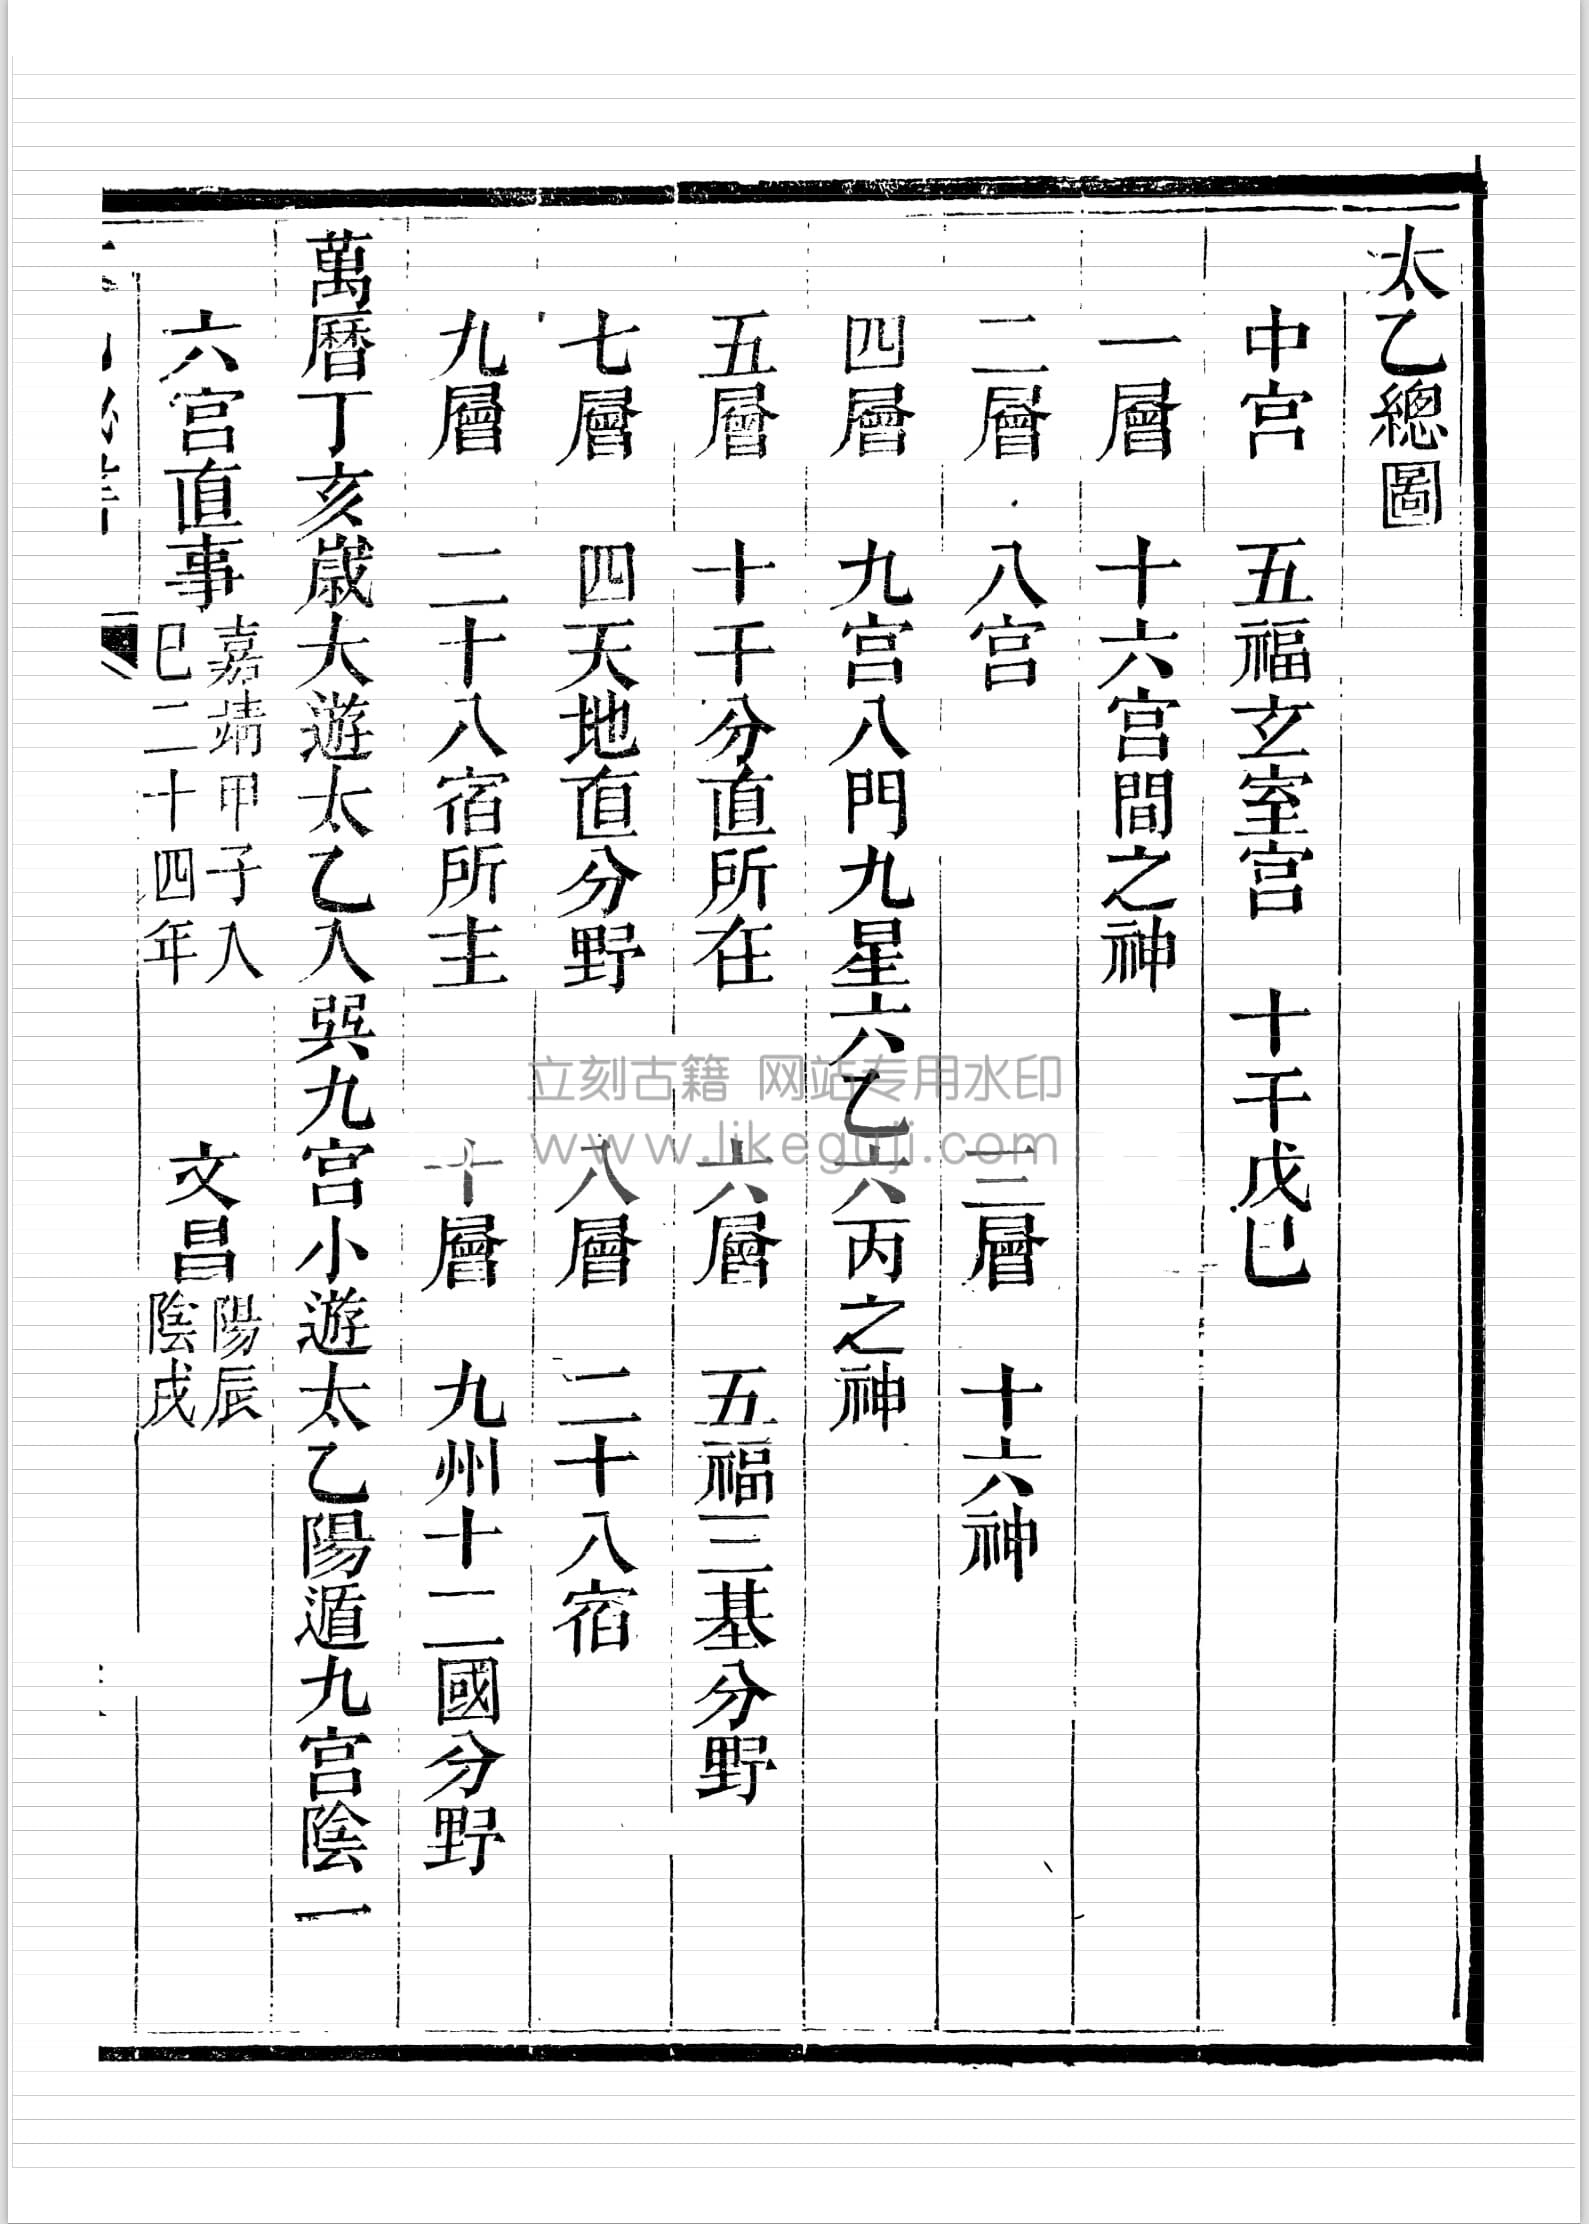 太乙總圖
中宮　五福玄室宮　十干戊己
一層　十六宮間之神
二層　八宮　三層　十六神
四層　九宮八門九星六乙六丙之神
五層　十干分直所在　六層　五福三基分野
七層　四天地直分野　八層　二十八宿
九層　二十八宿所主　十層　九州十二國分野
萬曆丁亥歲大遊太乙入巽九宮小遊太乙陽遁九宮陰一
六宮直事嘉靖甲子入
巳二十四年　文昌陽辰
陰戌
立刻古籍 网站专用水印
www.likeguji.com